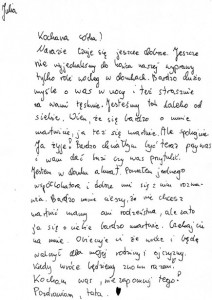 Kochana córko!
Narazie czuję się jeszcze dobrze. Jeszcze
nie wyjechaliśmy do kraju naszej wyprawy
tylko role wolną w domkach. Bardzo dużo
myślę o was w nocy i też strasznie
za wami tęsknie. Jesteśmy tak daleko od
siebie. Wiem, że się bardzo o mnie
martwicie, ja też się martwię. Ale spokojnie
Ja żyję! Bardzo chciałbym być teraz przy was
i wam dać buzi czy was przytulić.
Jestem w domku sam. Pamiętam jednego
współlokatora i dobrze mi się z nim rozma-
wia. Bardzo mnie cieszy, że nie chcesz
martwić mamy ani rodzeństwa, ale za to
ja się o ciebie bardzo martwię. Czekajcie
na mnie. Obiecuję ci że wrócę i będę
walczyć dla mojej rodziny i ojczyzny.
Kiedy wrócę będziemy znowu razem!
Kocham was, nie zapomnij tego!
Pozdrawiam, tata.